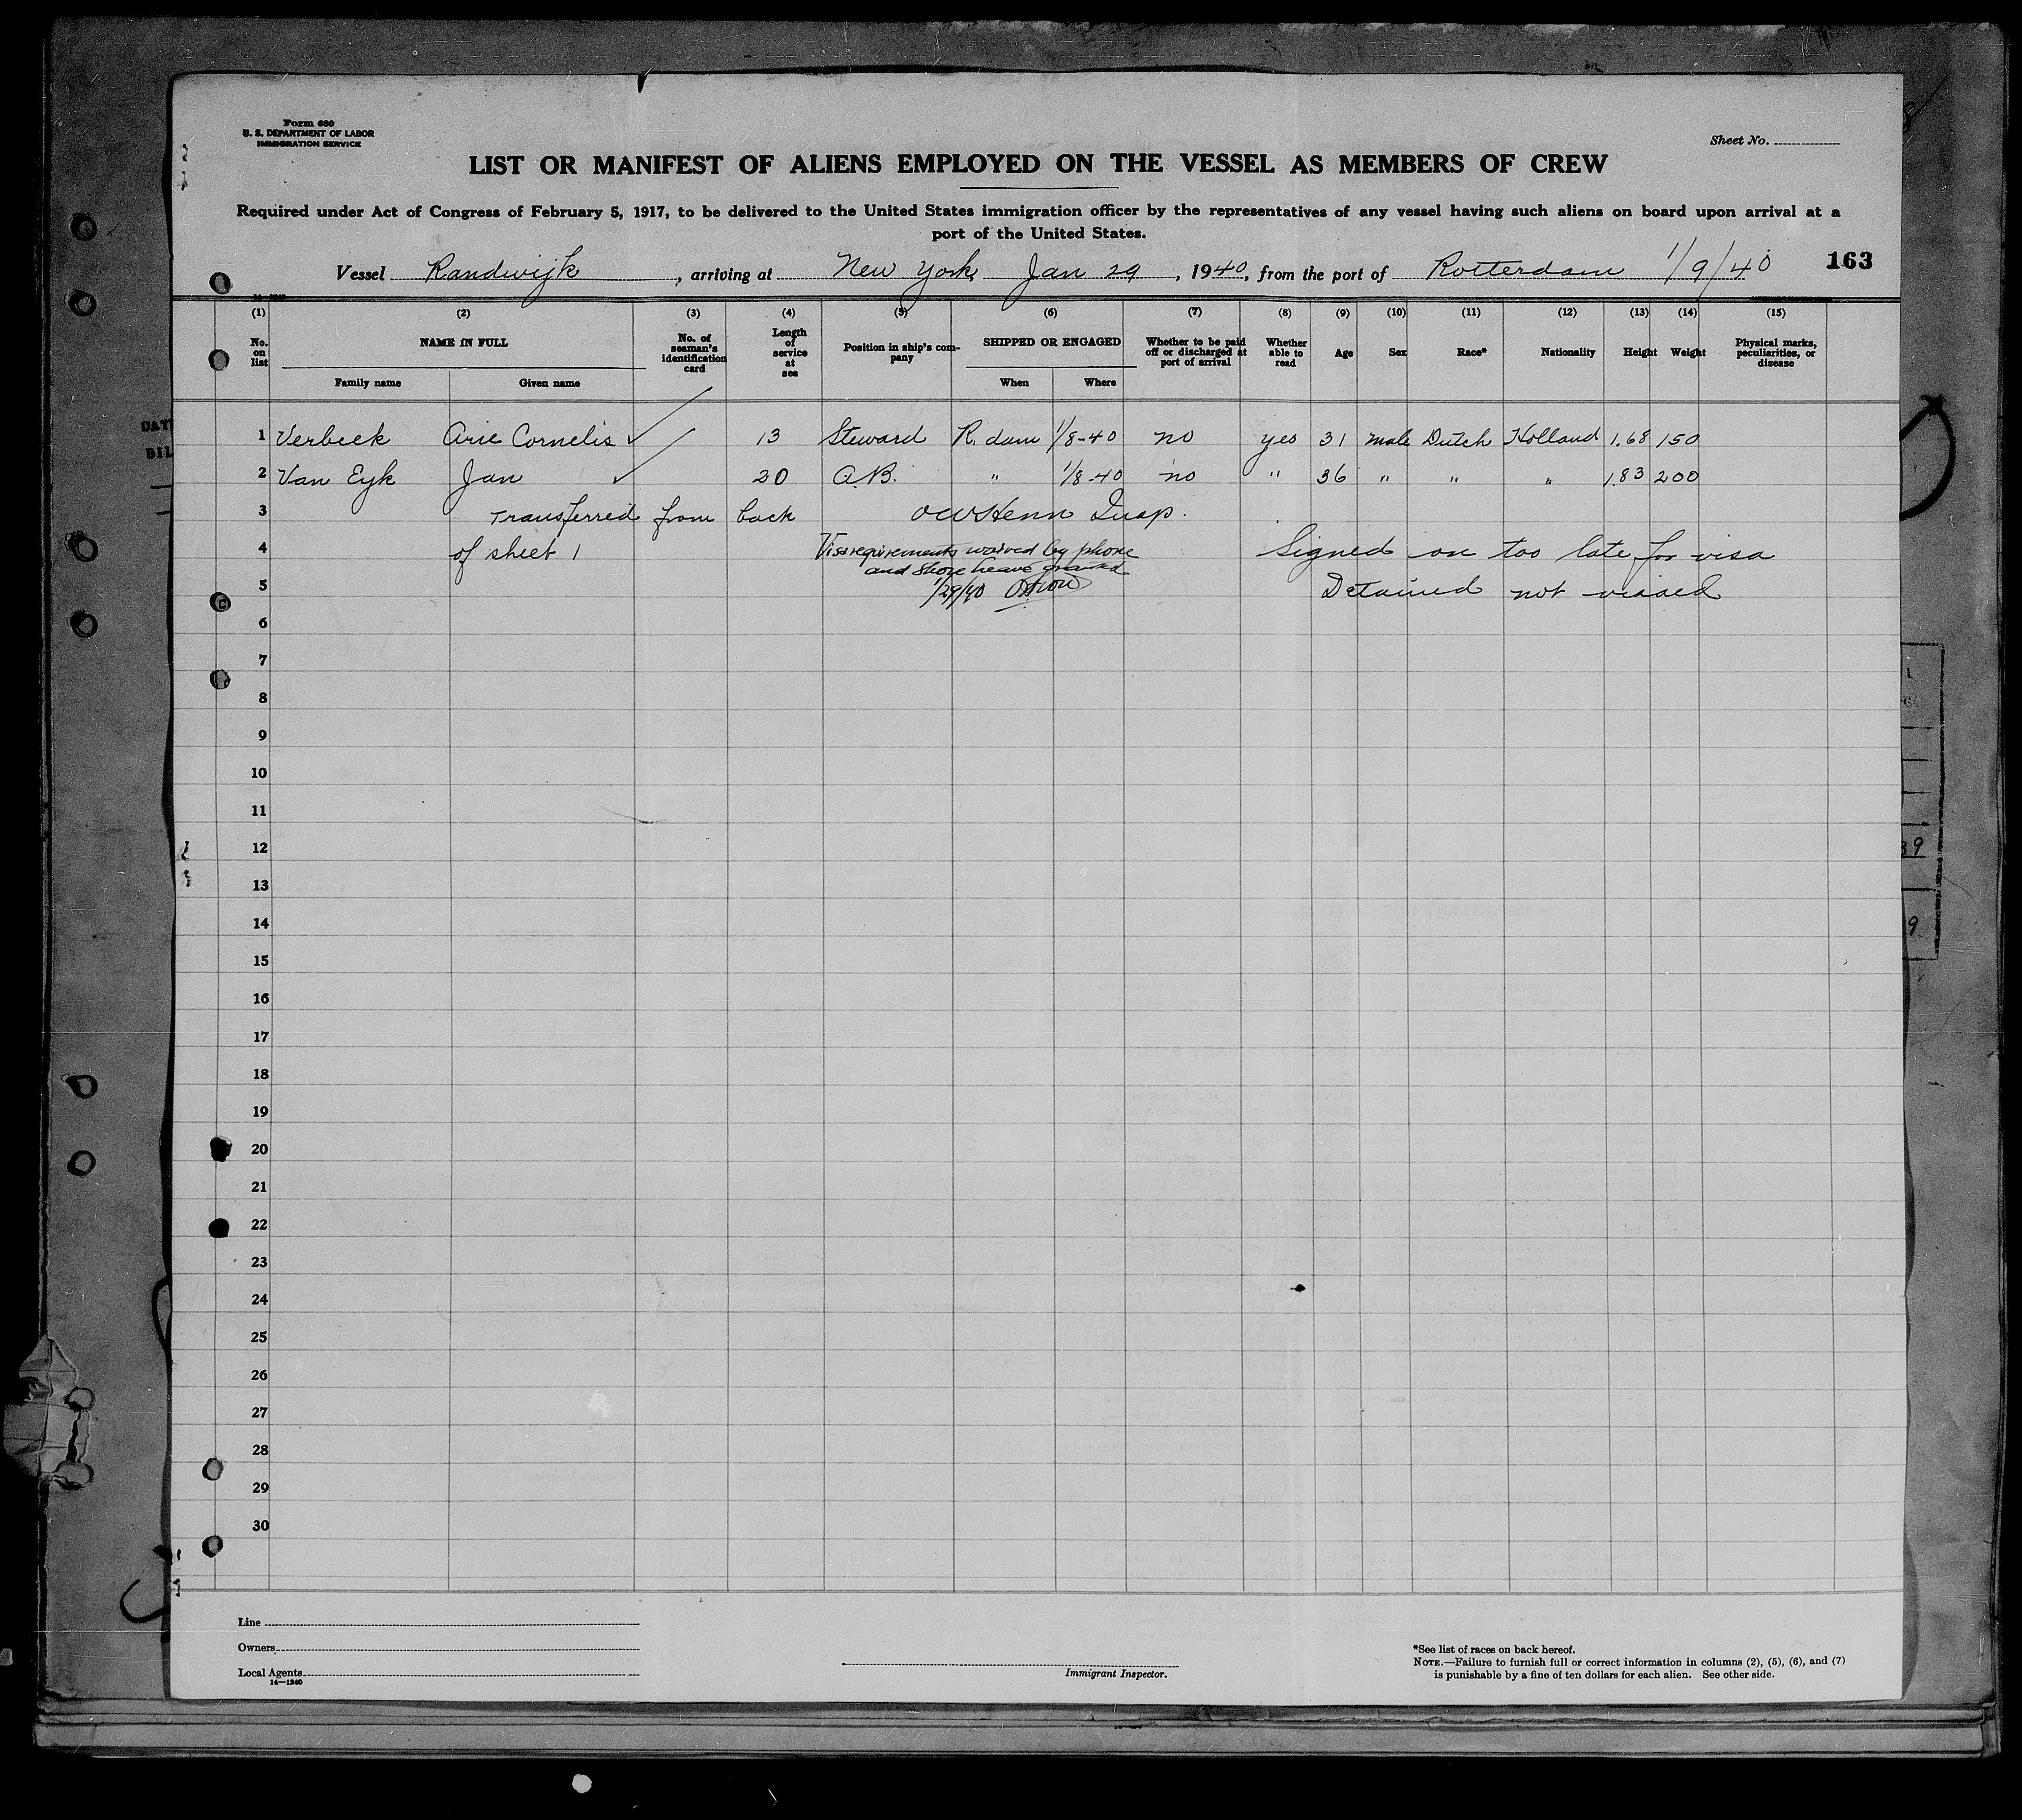 Form 680
U. S. DEPARTMENT OF LABOR
IMMIGRATION SERVICE
Sheet No.
LIST OR MANIFEST OF ALIENS EMPLOYED ON THE VESSEL AS MEMBERS OF CREW
Required under Act of Congress of February 5, 1917, to be delivered to the United States immigration officer by the representatives of any vessel having such aliens on board upon arrival at a
port of the United States.
Vessel Randwijk, arriving at New York Jan 29, 1940, from the port of Rotterdam 1/9/40 163
(1) (2) (3) (4) (5) (6) (7) (8) (9) (10) (11) (12) (13) (14) (15)
No. on list
NAME IN FULL
Family name
Given name
No. of seaman's identification card
Length of service at sea
Position in ship's company
SHIPPED OR ENGAGED
When
Where
Whether to be paid off or discharged at port of arrival
Whether able to read
Age
Sex
Race*
Nationality
Height
Weight
Physical marks, peculiarities, or disease
1 Verbeek Arie Cornelis ✓ 13 Steward R. dam 1/8-40 no yes 31 male Dutch Holland 1.68 150
2 Van Eyk Jan ✓ 20 A.B. " 1/8-40 no " 36 " " " 1.83 200
3 Transferred from back Insp.
4 of sheet 1 Visa requirements waived by phone Signed on too late for visa
and Shore Leave granted
5 1/29/40 Detained not visaed
6
7
8
9
10
11
12
13
14
15
16
17
18
19
20
21
22
23
24
25
26
27
28
29
30
Line
Owners
Local Agents
14—1240
Immigrant Inspector.
*See list of races on back hereof.
NOTE.—Failure to furnish full or correct information in columns (2), (5), (6), and (7)
is punishable by a fine of ten dollars for each alien. See other side.